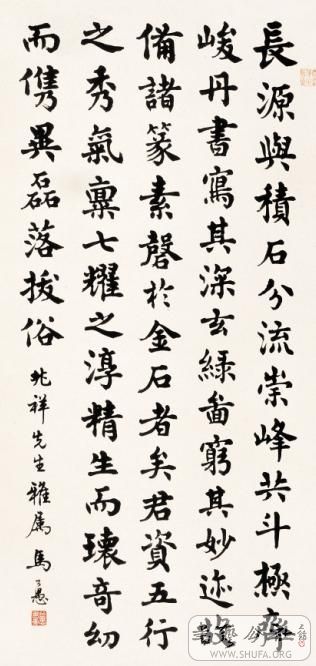 長源與積石分流崇峰共斗極齊
峻丹書寫其深玄綠啚窮其妙迹
備諸篆素罄於金石者矣君資五行
之秀氣稟七耀之淳精生而瓌奇幼
而儁異磊落拔俗
兆祥先生雅屬 馬公愚
WWW.SHUFA.ORG